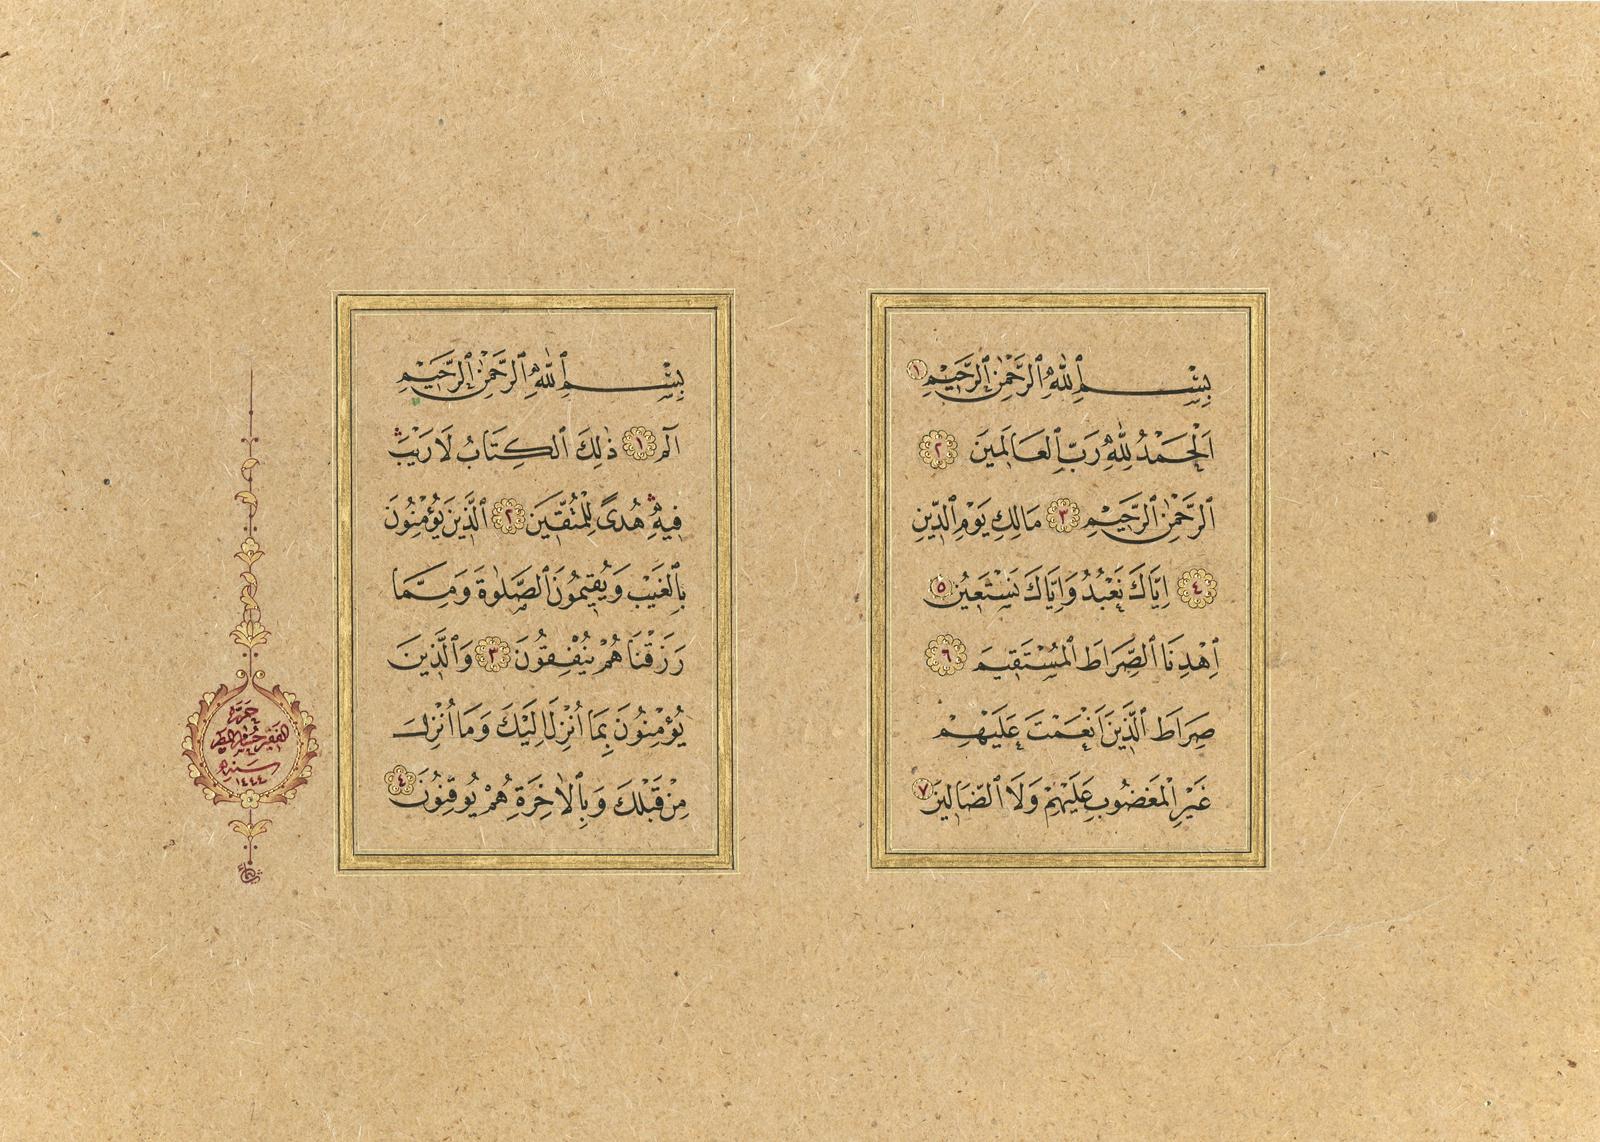 بِسْمِ ٱللّٰهِ ٱلرَّحْمٰنِ ٱلرَّحِيمِ ١
اَلْحَمْدُ لِلّٰهِ رَبِّ ٱلْعَالَمِينَ ٢
ٱلرَّحْمٰنِ ٱلرَّحِيمِ ٣ مَالِكِ يَوْمِ ٱلدِّينِ
٤ اِيَّاكَ نَعْبُدُ وَاِيَّاكَ نَسْتَعِينُ ٥
اِهْدِنَا ٱلصِّرَاطَ ٱلْمُسْتَقِيمَ ٦
صِرَاطَ ٱلَّذِينَ اَنْعَمْتَ عَلَيْهِمْ
غَيْرِ ٱلْمَغْضُوبِ عَلَيْهِمْ وَلَا ٱلضَّالِّينَ ٧
بِسْمِ ٱللّٰهِ ٱلرَّحْمٰنِ ٱلرَّحِيمِ
الٓمٓ ١ ذٰلِكَ ٱلْكِتَابُ لَا رَيْبَ ۛ
فِيهِ ۛ هُدًى لِلْمُتَّقِينَ ٢ ٱلَّذِينَ يُؤْمِنُونَ
بِٱلْغَيْبِ وَيُقِيمُونَ ٱلصَّلٰوةَ وَمِمَّا
رَزَقْنَاهُمْ يُنْفِقُونَ ٣ وَٱلَّذِينَ
يُؤْمِنُونَ بِمَا اُنْزِلَ اِلَيْكَ وَمَا اُنْزِلَ
مِنْ قَبْلِكَ وَبِٱلْاٰخِرَةِ هُمْ يُوقِنُونَ ٤
الفقير
سنه
١٤٤٤